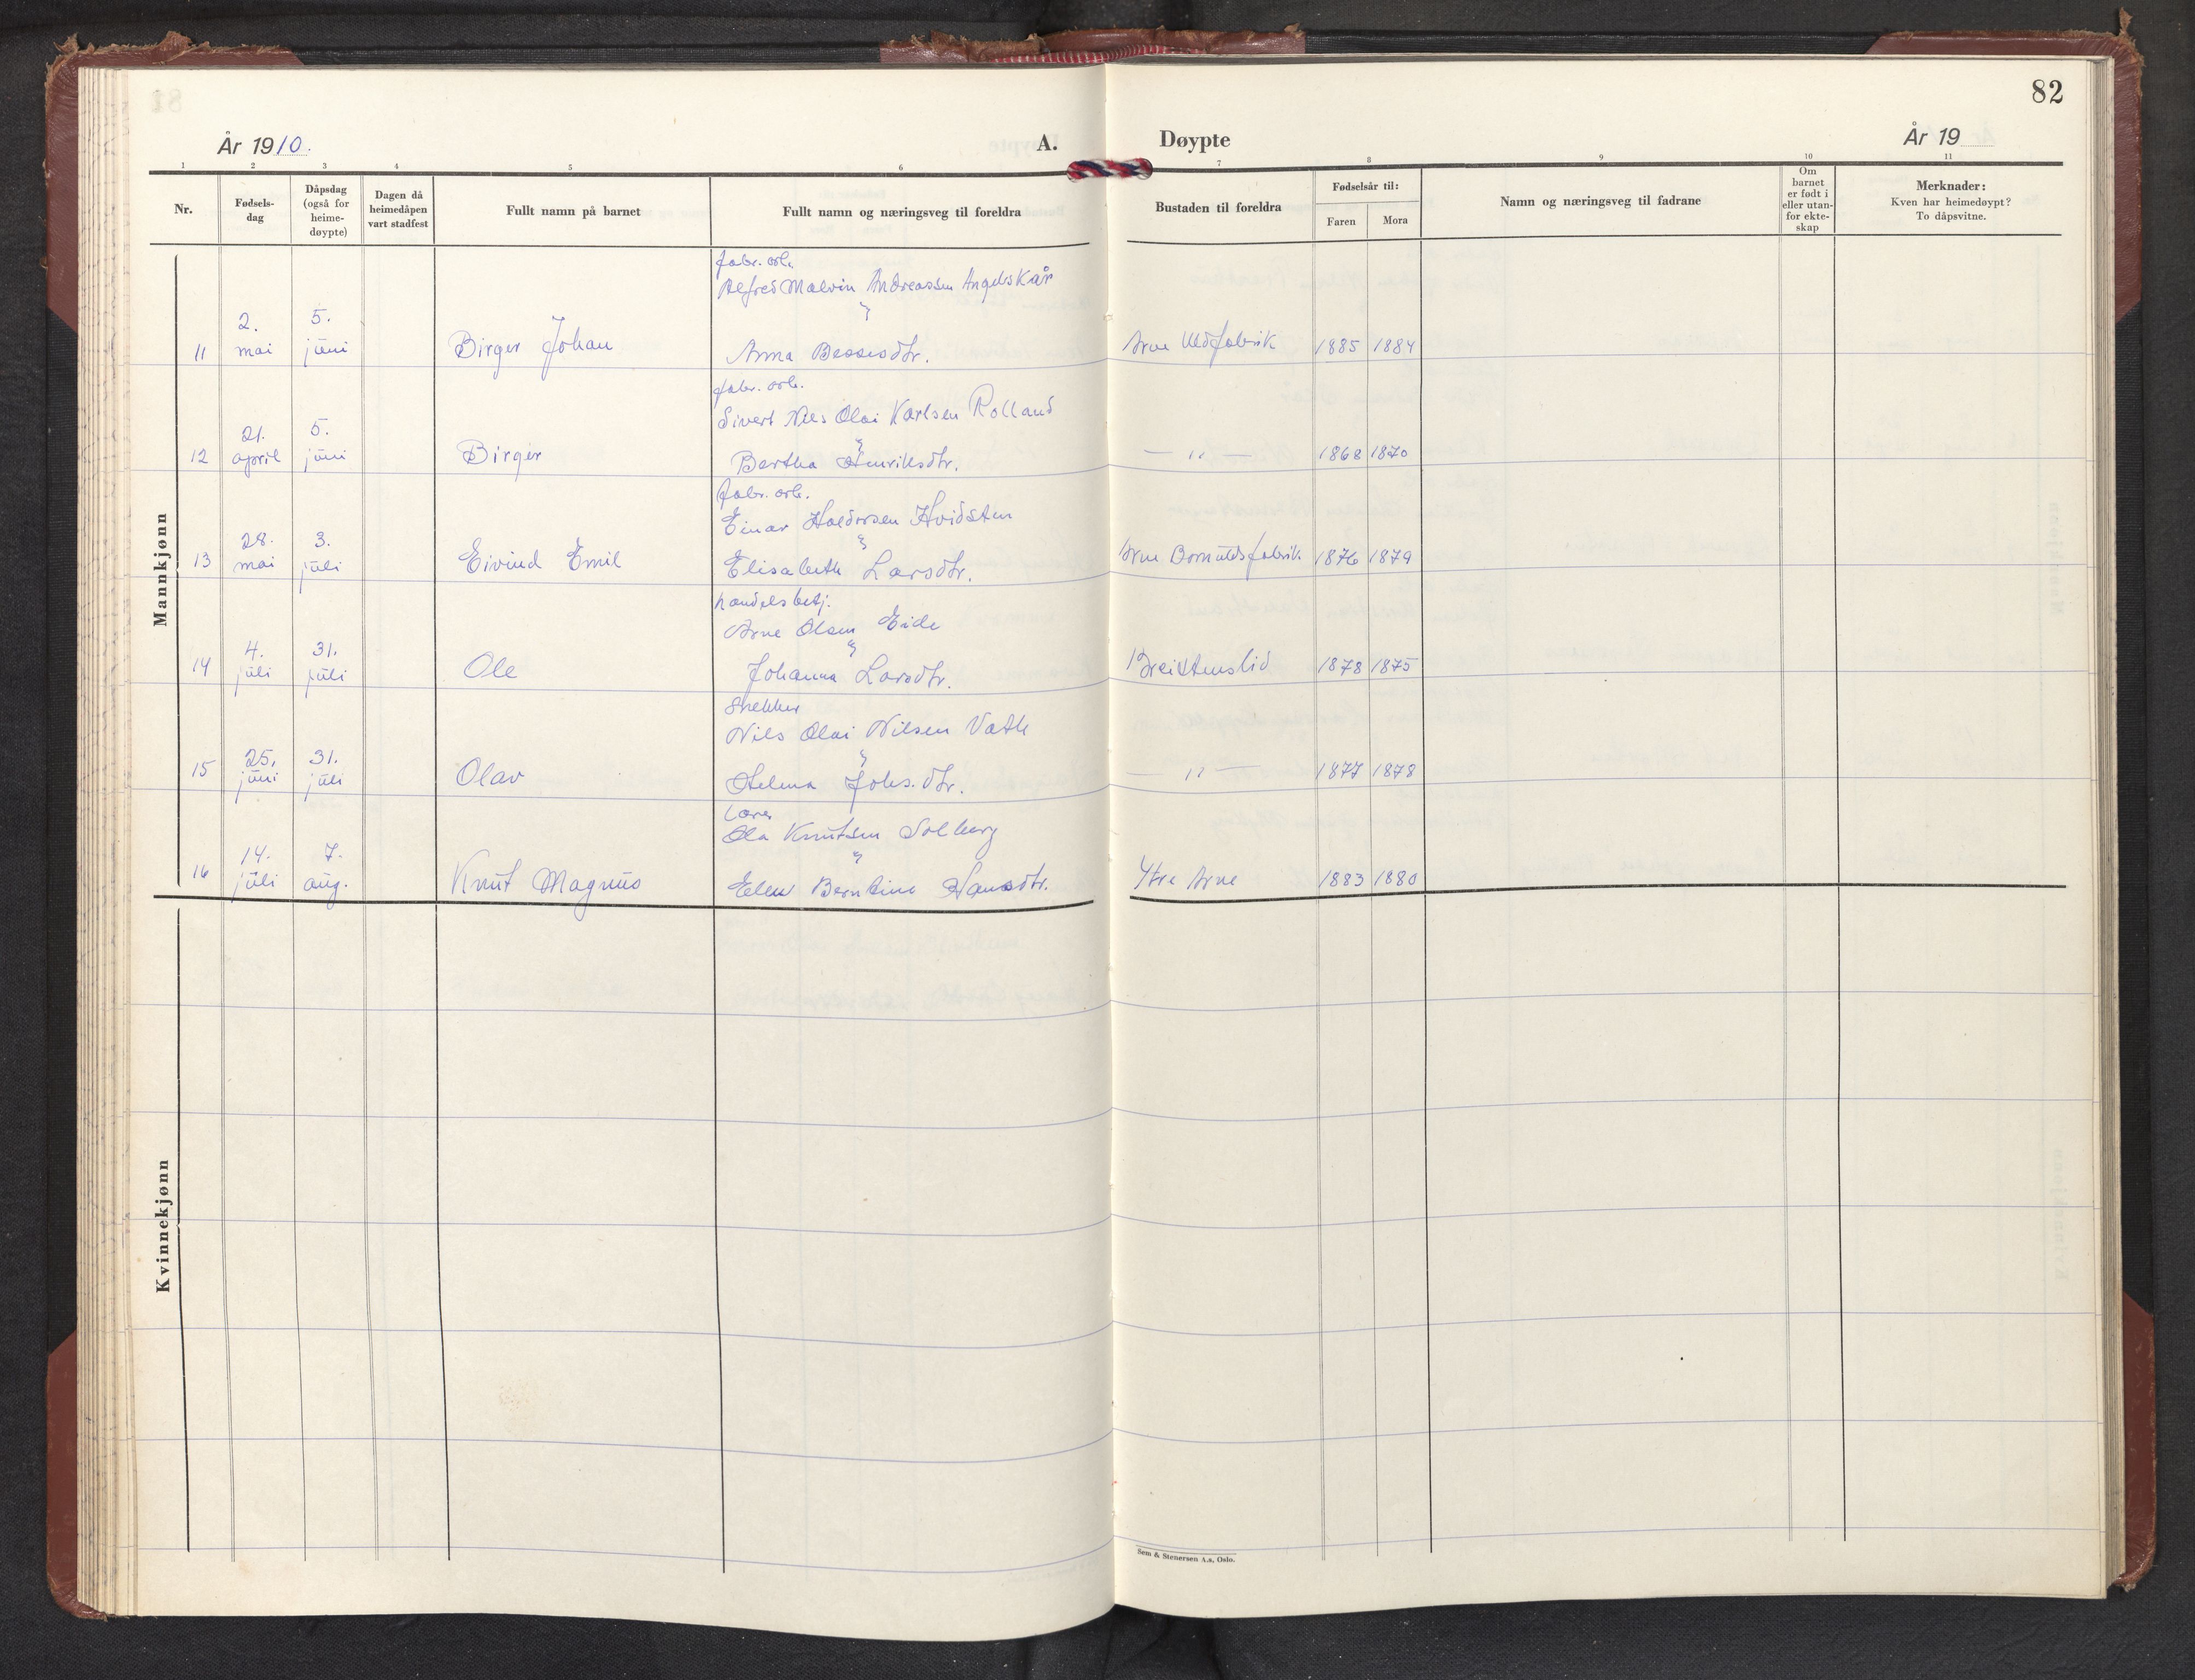 82
År 1910.
A.
Døypte
År 19
1 2 3 4 5 6 7 8 9 10 11
Nr.
Fødsels-
dag
Dåpsdag
(også for
heime-
døypte)
Dagen då
heimedåpen
vart stadfest
Fullt namn på barnet
Fullt namn og næringsveg til foreldra
Bustaden til foreldra
Fødselsår til:
Faren Mora
Namn og næringsveg til fadrane
Om
barnet
er født i
eller utan-
for ekte-
skap
Merknader:
Kven har heimedøypt?
To dåpsvitne.
Mankjønn
fabr. arb.
Alfred Malvin Andreassen Angelskår
2. 5.
11 mai juni Birger Johan Anna Bessesdtr. Arne Uldfabrik 1885 1884
fabr. arb.
Sivert Nils Olai Karlsen Rolland
21. 5.
12 april juni Birger Bertha Henriksdtr. — " — 1868 1870
fabr. arb.
Einar Haldorsen Hvidsten
28. 3.
13 mai juli Eivind Emil Elisabeth Larsdtr. Arne Bomuldsfabrik 1876 1879
handelsbetj.
Arne Olsen Eide
4. 31.
14 juli juli Ole Johanna Larsdtr. Breistenslid 1878 1875
Snekker
Nils Olai Nilsen Vatle
25. 31.
15 juni juli Olav Helena Johs. dtr. — " — 1877 1878
Lærer
Ola Knutsen Solberg
14. 7.
16 juli aug. Knut Magnus Ellen Berntine Hansdtr. Ytre Arne 1883 1880
Kvinnekjønn
Sem & Stenersen A.s, Oslo.